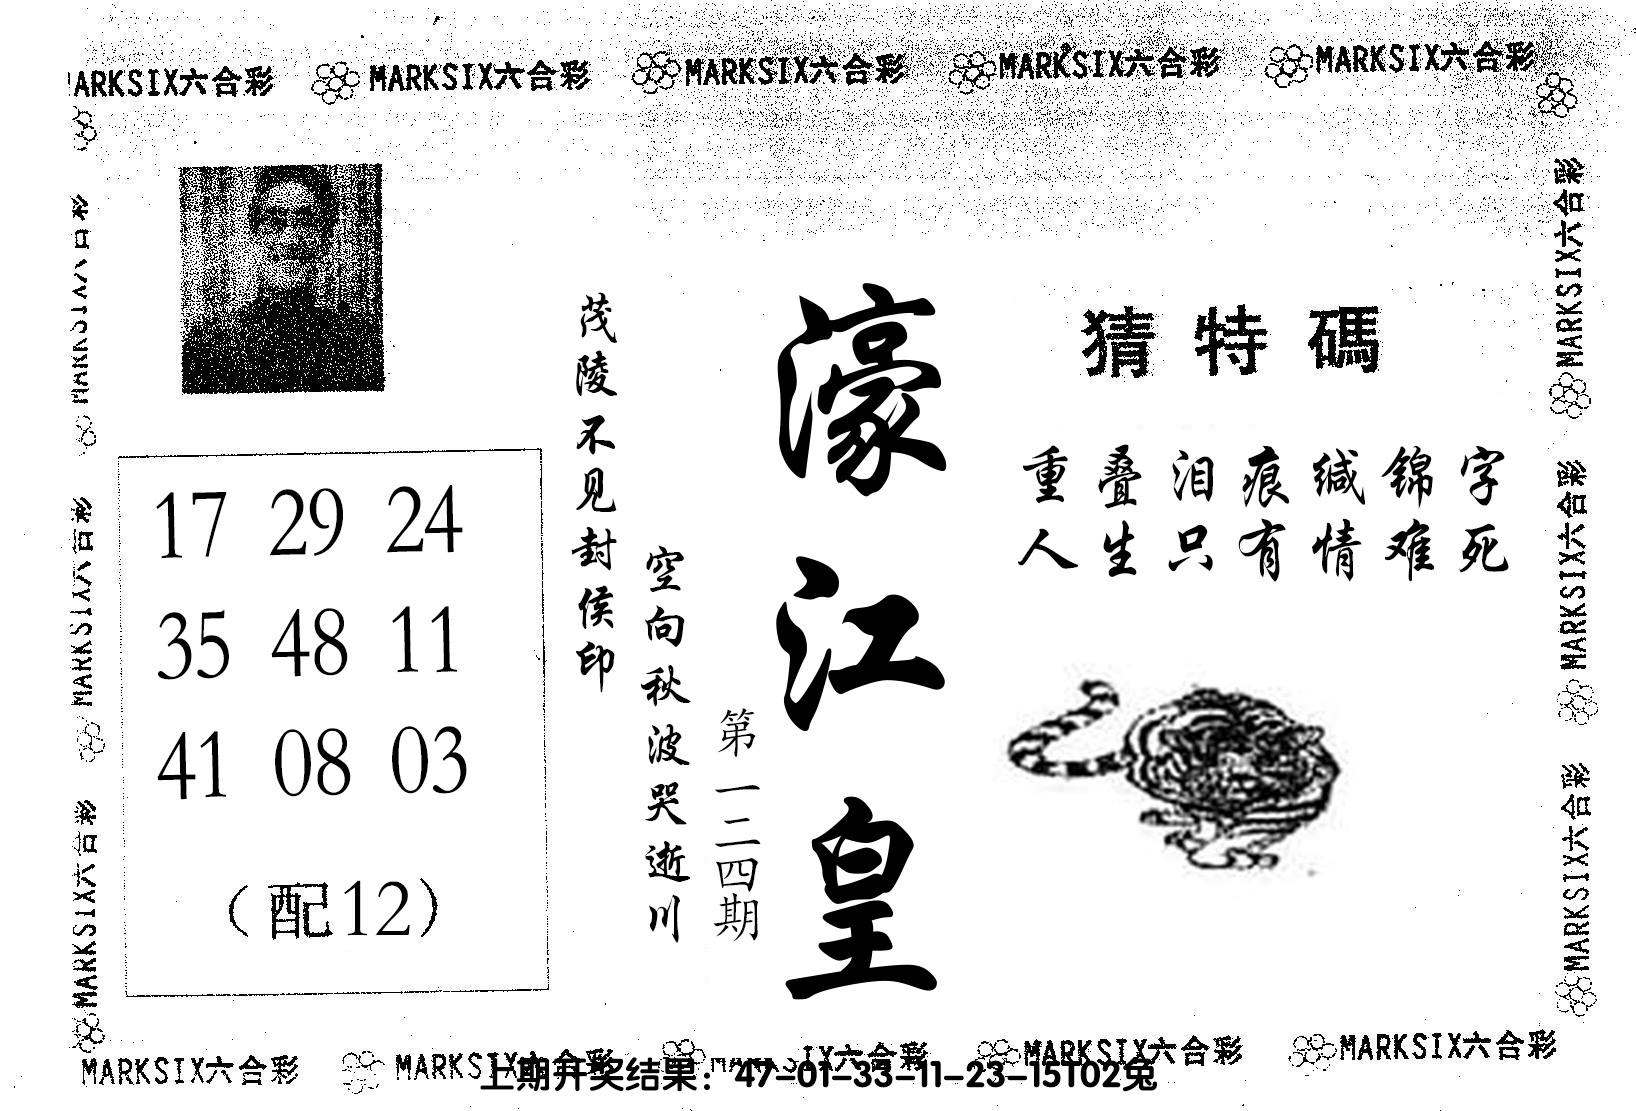 MARKSIX六合彩 MARKSIX六合彩 MARKSIX六合彩 MARKSIX六合彩 MARKSIX六合彩
MARKSIX六合彩
MARKSIX六合彩
MARKSIX六合彩
17 29 24
35 48 11
41 08 03
（配12）
茂陵不见封侯印
空向秋波哭逝川
第一二四期
濠江皇
猜特碼
重叠泪痕缄锦字
人生只有情难死
MARKSIX六合彩
MARKSIX六合彩
MARKSIX六合彩
MARKSIX六合彩 MARKSIX六合彩 MARKSIX六合彩 MARKSIX六合彩 MARKSIX六合彩
上期开奖结果：47-01-33-11-23-15T02兔